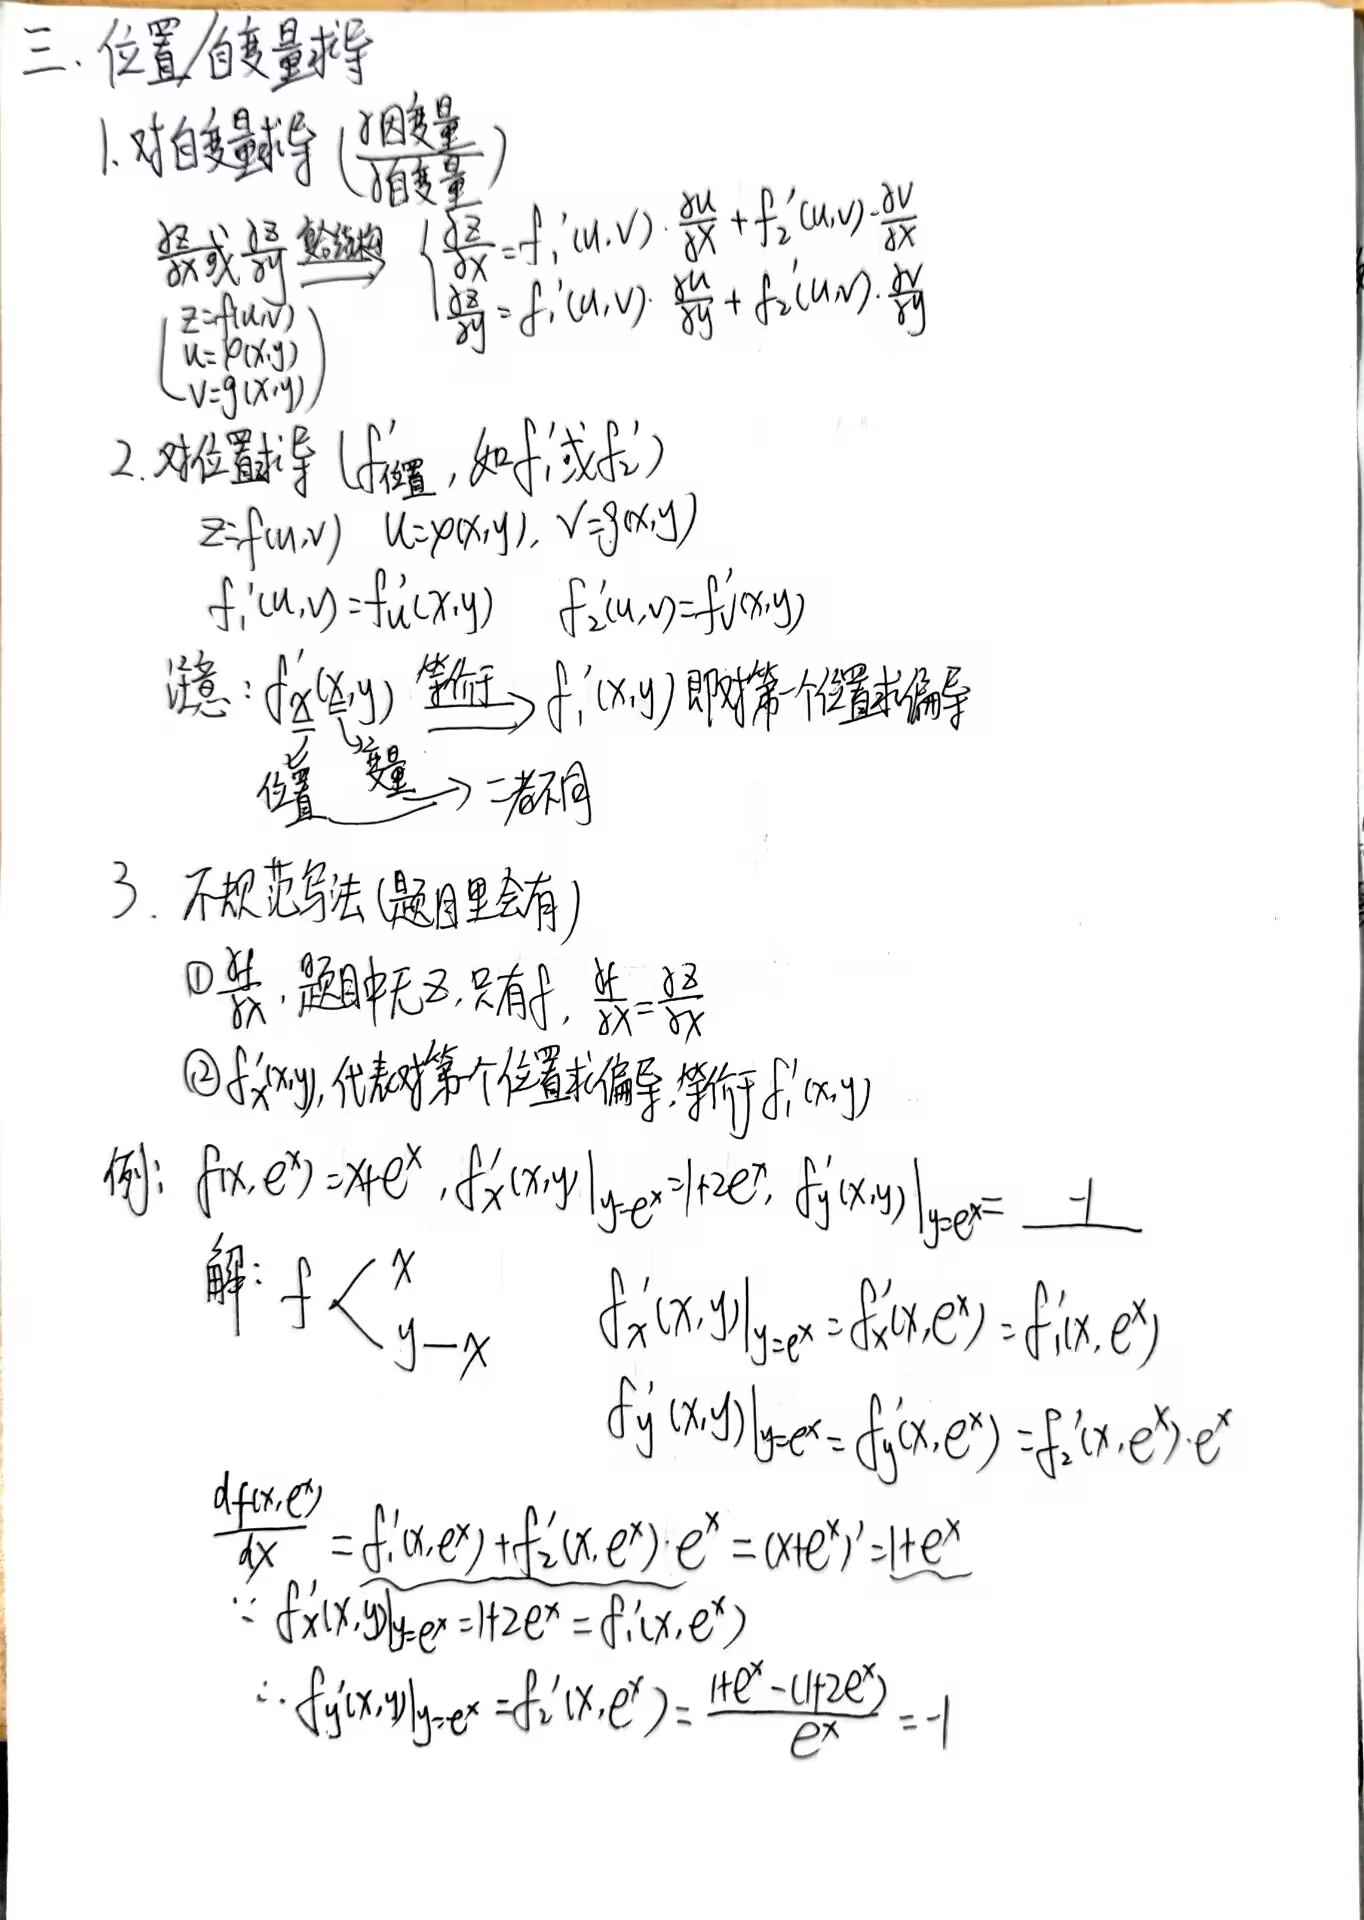 三、位置/自变量求导
1. 对自变量求导 (∂因变量/∂自变量)
∂z/∂x 或 ∂z/∂y 复合结构 ⟹ { ∂z/∂x = f₁′(u,v)·∂u/∂x + f₂′(u,v)·∂v/∂x
∂z/∂y = f₁′(u,v)·∂u/∂y + f₂′(u,v)·∂v/∂y
(z=f(u,v)
u=φ(x,y)
v=g(x,y))
2. 对位置求导 (f′位置, 如f₁′或f₂′)
z=f(u,v) u=φ(x,y), v=g(x,y)
f₁′(u,v)=fu′(x,y) f₂′(u,v)=fv′(x,y)
注意: fx′(x,y) 等价于 ⟹ f₁′(x,y) 即对第一个位置求偏导
位置 变量 → 二者不同
3. 不规范写法(题目里会有)
① ∂f/∂x, 题目中无z, 只有f, ∂f/∂x=∂z/∂x
② fx′(x,y), 代表对第一个位置求偏导, 等价于f₁′(x,y)
例: f(x,eˣ)=x+eˣ, fx′(x,y)|y=eˣ=1+2eˣ, fy′(x,y)|y=eˣ= -1
解: f < x
y—x
fx′(x,y)|y=eˣ = fx′(x,eˣ) = f₁′(x,eˣ)
fy′(x,y)|y=eˣ = fy′(x,eˣ) = f₂′(x,eˣ)·eˣ
df(x,eˣ)/dx = f₁′(x,eˣ)+f₂′(x,eˣ)·eˣ = (x+eˣ)′ = 1+eˣ
∵ fx′(x,y)|y=eˣ = 1+2eˣ = f₁′(x,eˣ)
∴ fy′(x,y)|y=eˣ = f₂′(x,eˣ) = (1+eˣ-(1+2eˣ))/eˣ = -1